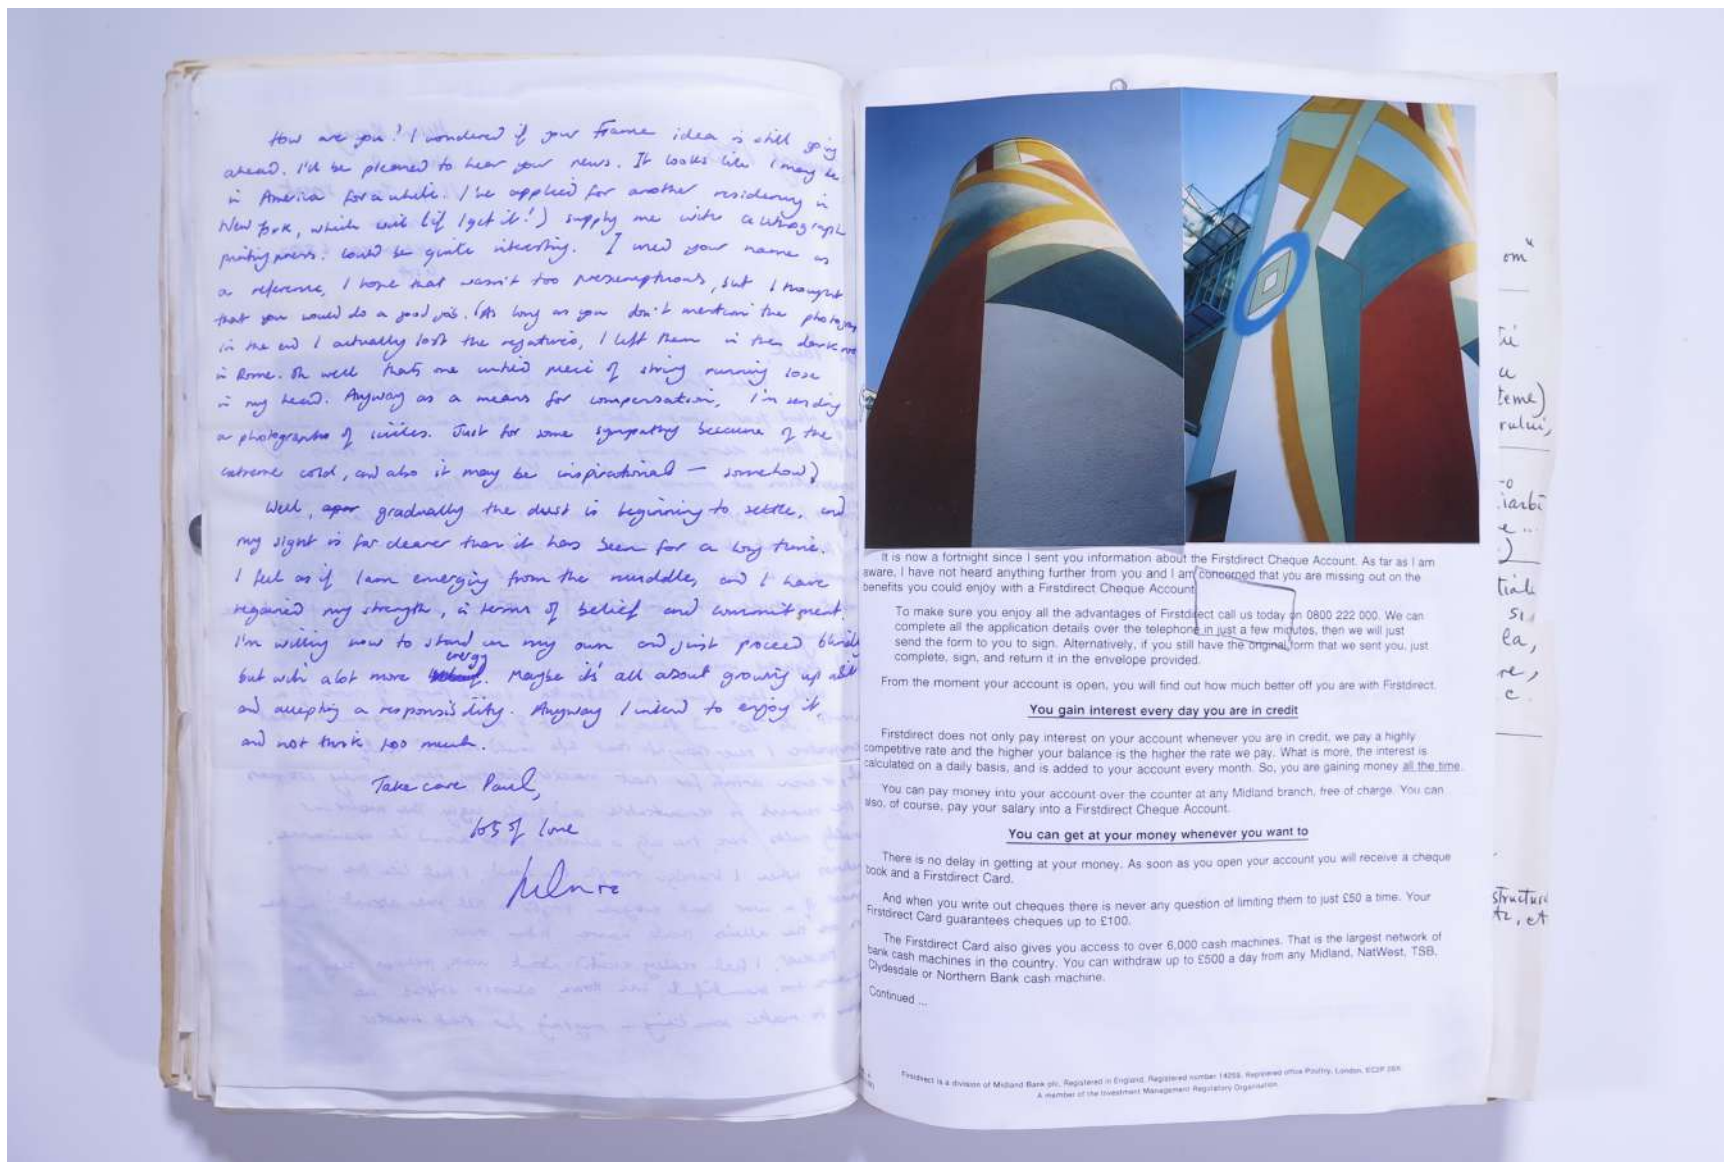 How are you! I wondered if your Frame idea is still going
ahead. I'd be pleased to hear your news. It looks like I may be
in America for a while. I've applied for another residency in
New York, which will (if I get it!) supply me with a lithograph
printing press. Could be quite interesting. I used your name as
a reference, I hope that wasn't too presumptuous, but I thought
that you would do a good job. (As long as you don't mention the
in the end I actually lost the negatives, I left them in the
in Rome. Oh well thats one untied piece of string running lose
in my head. Anyway as a means for compensation, I'm sending
a photographs of circles. Just for some sympathy because of the
extreme cold, and also it may be inspirational — somehow)
Well, gradually the dust is beginning to settle, and
my sight is far clearer than it has been for a long time.
I feel as if I am emerging from the muddle, and I have
regained my strength, in terms of belief and commitment.
I'm willing now to stand on my own and just proceed blindly
but with alot more energy. Maybe it's all about growing up
and accepting a responsibility. Anyway I intend to enjoy it,
and not think too much.
Take care Paul,
lots of love
It is now a fortnight since I sent you information about the Firstdirect Cheque Account. As far as I am
aware, I have not heard anything further from you and I am concerned that you are missing out on the
benefits you could enjoy with a Firstdirect Cheque Account
To make sure you enjoy all the advantages of Firstdirect call us today on 0800 222 000. We can
complete all the application details over the telephone in just a few minutes, then we will just
send the form to you to sign. Alternatively, if you still have the original form that we sent you, just
complete, sign, and return it in the envelope provided.
From the moment your account is open, you will find out how much better off you are with Firstdirect.
You gain interest every day you are in credit
Firstdirect does not only pay interest on your account whenever you are in credit, we pay a highly
competitive rate and the higher your balance is the higher the rate we pay. What is more, the interest is
calculated on a daily basis, and is added to your account every month. So, you are gaining money all the time.
You can pay money into your account over the counter at any Midland branch, free of charge. You can
also, of course, pay your salary into a Firstdirect Cheque Account.
You can get at your money whenever you want to
There is no delay in getting at your money. As soon as you open your account you will receive a cheque
book and a Firstdirect Card.
And when you write out cheques there is never any question of limiting them to just £50 a time. Your
Firstdirect Card guarantees cheques up to £100.
The Firstdirect Card also gives you access to over 6,000 cash machines. That is the largest network of
bank cash machines in the country. You can withdraw up to £500 a day from any Midland, NatWest, TSB,
Clydesdale or Northern Bank cash machine.
Continued ...
Firstdirect is a division of Midland Bank plc, Registered in England, Registered number 14259, Registered office Poultry, London, EC2P 2BX
A member of the Investment Management Regulatory Organisation